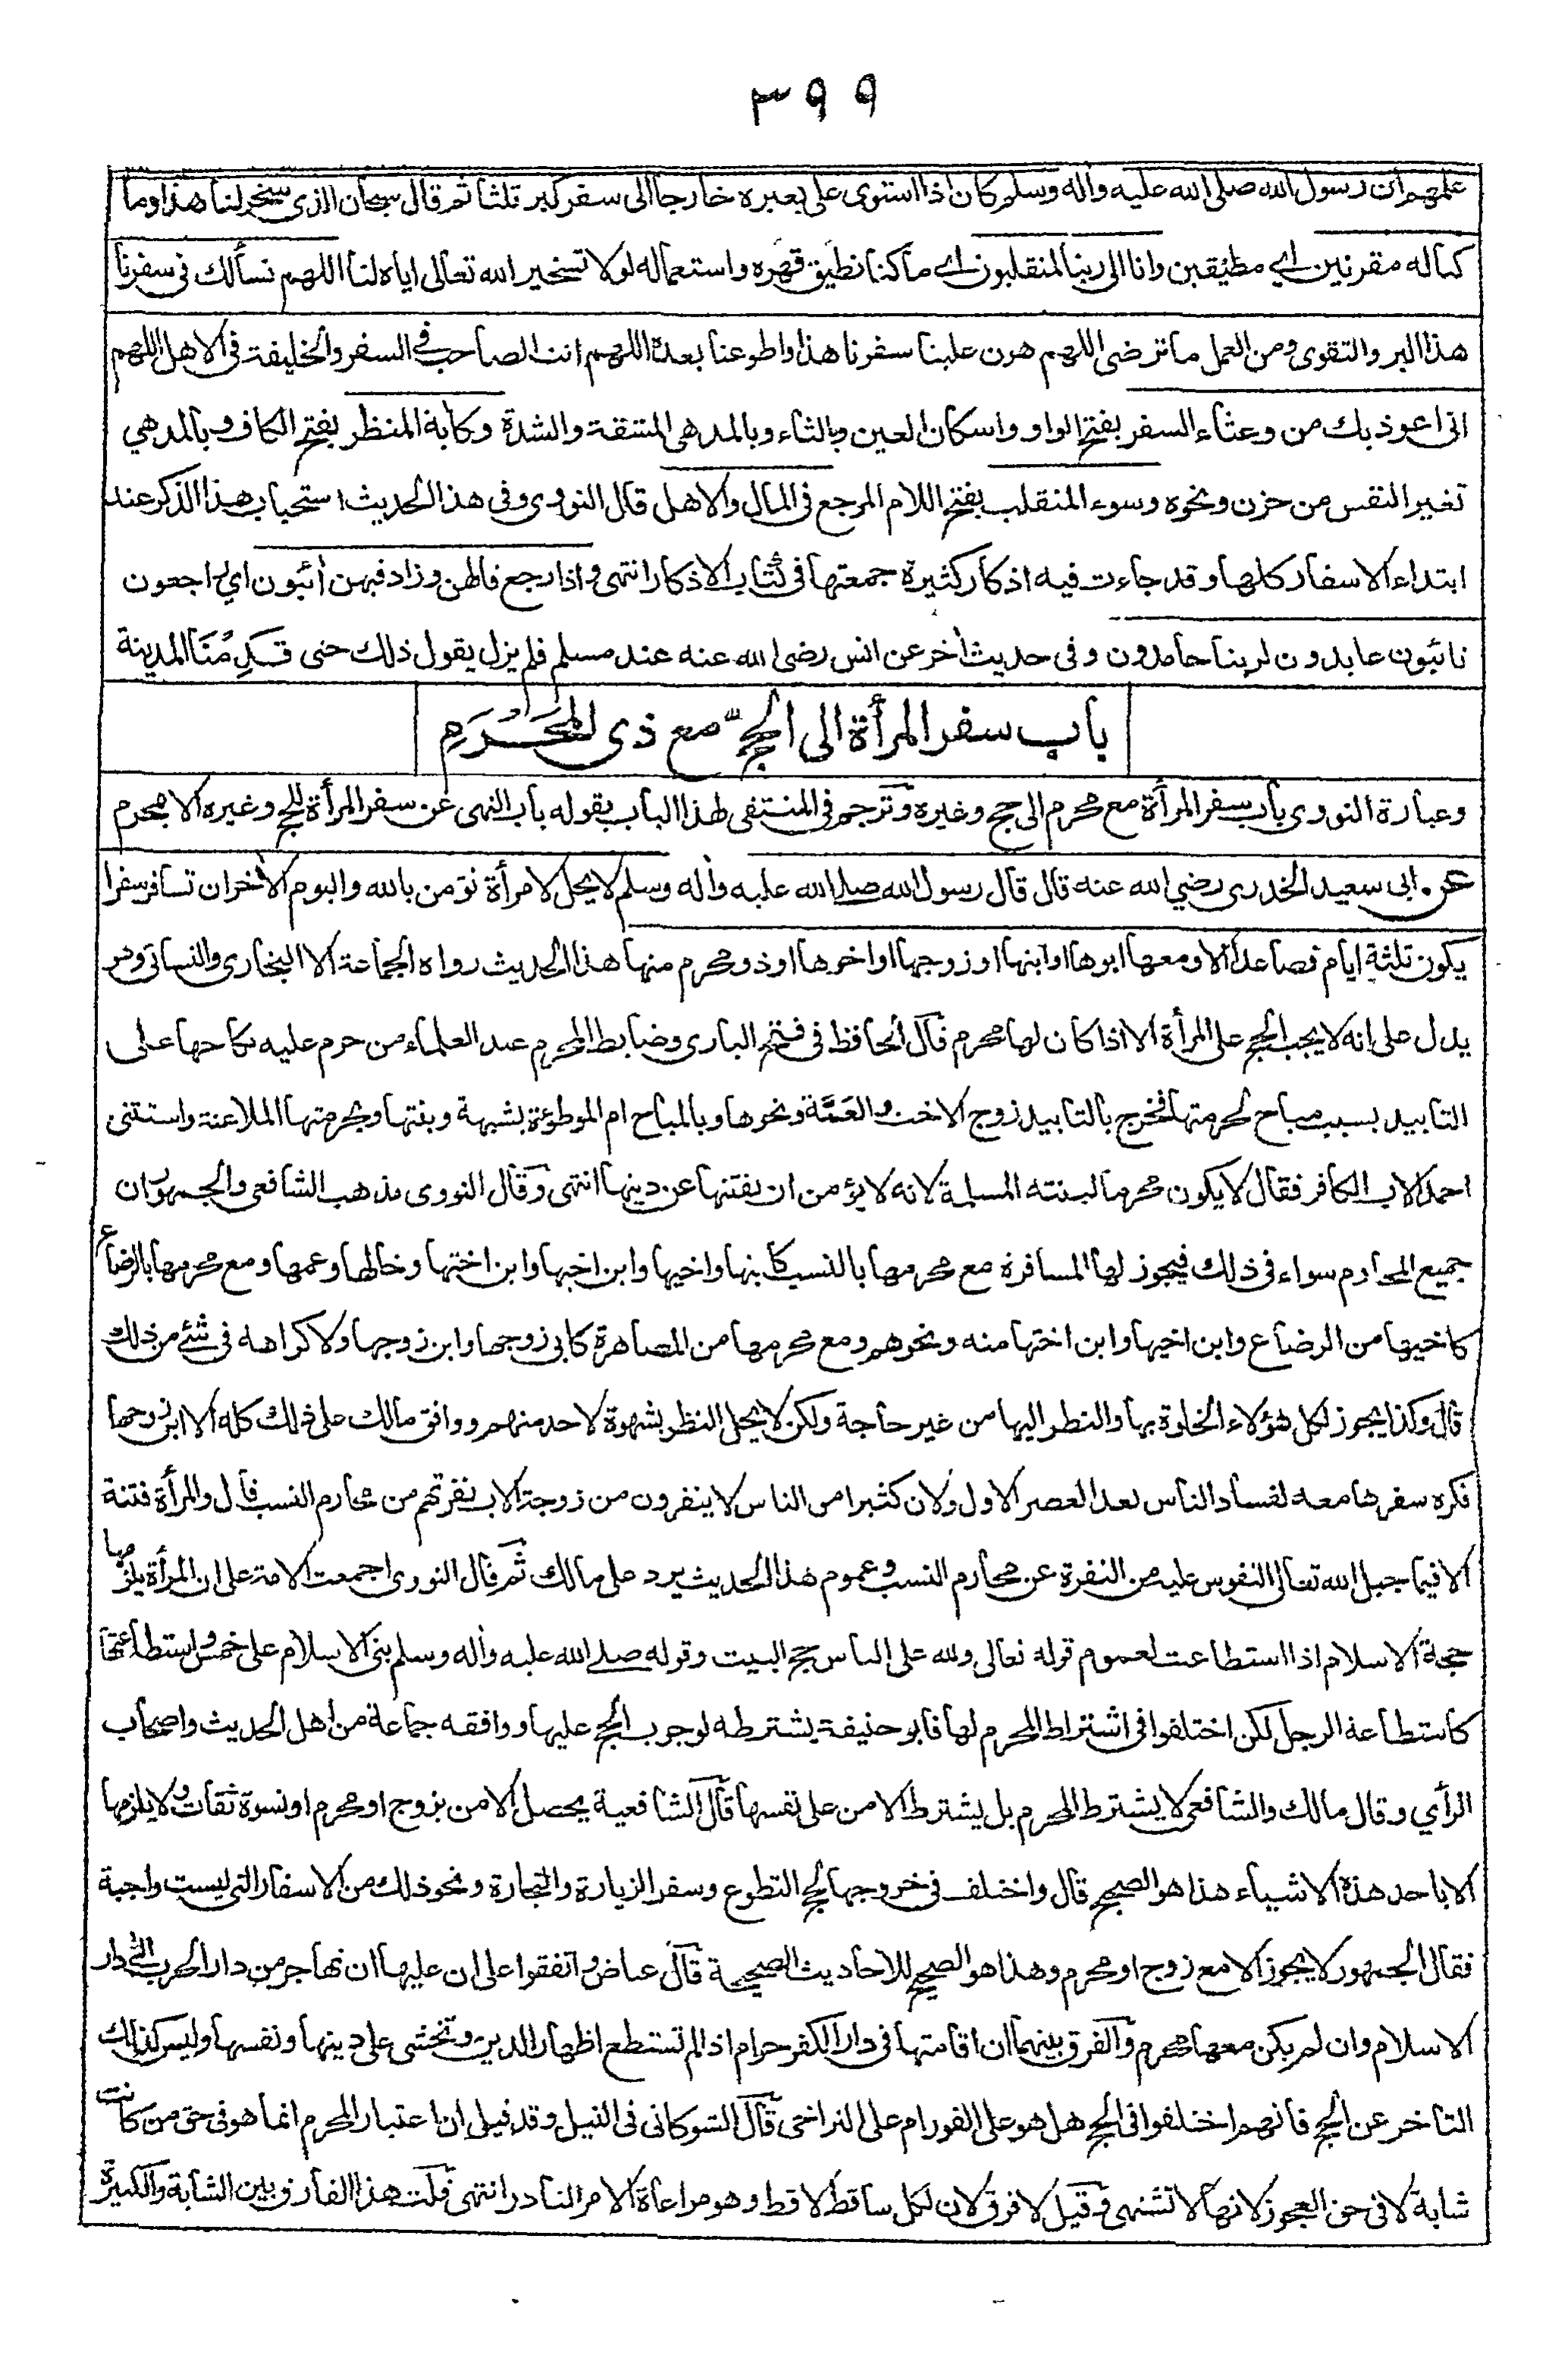 ٣٩٩
علمهم ان رسول الله صلى الله عليه واله وسلم كان اذا استوى على بعيره خارجا الى سفر كبر ثلثا ثم قال سبحان الذى سخر لنا هذا وما
كنا له مقرنين اي مطيقين وانا الى ربنا لمنقلبون اي ما كنا نطيق قهره واستعماله لولا تسخير الله تعالى اياه لنا اللهم نسألك فى سفرنا
هذا البر والتقوى ومن العمل ما ترضى اللهم هون علينا سفرنا هذا واطو عنا بعده اللهم انت الصاحب فى السفر والخليفة فى الاهل اللهم
انى اعوذ بك من وعثاء السفر بفتح الواو واسكان العين وبالثاء وبالمد هى المشقة والشدة وكابة المنظر بفتح الكاف وبالمد هي
تغير النفس من حزن ونحوه وسوء المنقلب بفتح اللام المرجع فى المال والاهل قال النووى وفى هذا الحديث استحباب هذا الذكر عند
ابتداء الاسفار كلها وقد جاءت فيه اذكار كثيرة جمعتها فى كتاب الاذكار انتهى واذا رجع قالهن وزاد فيهن أئبون اي راجعون
تائبون عابدون لربنا حامدون وفى حديث أخر عن انس رضى الله عنه عند مسلم فلم يزل يقول ذلك حتى قَدِمْنَا المدينة
باب سفر المرأة الى الحج مع ذى المَحْرَمِ
وعبارة النووى باب سفر المرأة مع محرم الى حج وغيره وترجم فى المنتقى لهذا الباب بقوله باب النهى عن سفر المرأة للحج وغيره الا بمحرم
عن ابى سعيد الخدرى رضي الله عنه قال قال رسول الله صلى الله عليه وأله وسلم لا يحل لامرأة تؤمن بالله واليوم الأخر ان تسافر سفرا
يكون ثلثة ايام فصاعدا الا ومعها ابوها او ابنها او زوجها او اخوها او ذو محرم منها هذا الحديث رواه الجماعة الا البخارى والنسائى وهو
يدل على انه لا يجب الحج على المرأة الا اذا كان لها محرم قال الحافظ فى فتح البارى وضابط المحرم عند العلماء من حرم عليه نكاحها على
التابيد بسبب مباح لحرمتها فخرج بالتابيد زوج الاخت والعَمَّة ونحوها وبالمباح ام الموطوءة بشبهة وبنتها وبحرمتها الملاعنة واستثنى
احمد الاب الكافر فقال لا يكون محرما لبنته المسلمة لانه لا يؤمن ان يفتنها عن دينها انتهى وقال النووى مذهب الشافعى والجمهور ان
جميع المحارم سواء فى ذلك فيجوز لها المسافرة مع محرمها بالنسب كابنها واخيها وابن اخيها وابن اختها وخالها وعمها ومع محرمها بالرضاع
كاخيها من الرضاع وابن اخيها وابن اختها منه ونحوهم ومع محرمها من المصاهرة كابى زوجها وابن زوجها ولا كراهة فى شئ من ذلك
قال وكذا يجوز لكل هؤلاء الخلوة بها والنظر اليها من غير حاجة ولكن لا يحل النظر بشهوة لاحد منهم ووافق مالك على ذلك كله الا ابن زوجها
فكره سفرها معه لفساد الناس بعد العصر الاول ولان كثيرا من الناس لا ينفرون من زوجة الاب نفرتهم من محارم النسب قال والمرأة فتنة
الا فيما جبل الله تعالى النفوس عليه من النفرة عن محارم النسب وعموم هذا الحديث يرد على مالك ثم قال النووى اجمعت الامة على ان المرأة يلزمها
حجة الاسلام اذا استطاعت لعموم قوله تعالى ولله على الناس حج البيت وقوله صلى الله عليه وأله وسلم بنى الاسلام على خمس واستطاعتها
كاستطاعة الرجل لكن اختلفوا فى اشتراط المحرم لها فابو حنيفة يشترطه لوجوب الحج عليها ووافقه جماعة من اهل الحديث واصحاب
الرأي وقال مالك والشافعى لا يشترط المحرم بل يشترط الامن على نفسها قال الشافعية يحصل الامن بزوج او محرم او نسوة ثقات ولا يلزمها
الا باحد هذه الاشياء هذا هو الصحيح قال واختلف فى خروجها لحج التطوع وسفر الزيارة والتجارة ونحو ذلك من الاسفار التى ليست واجبة
فقال الجمهور لا يجوز الا مع زوج او محرم وهذا هو الصحيح للاحاديث الصحيحة قال عياض واتفقوا على ان عليها ان تهاجر من دار الحرب الى دار
الاسلام وان لم يكن معها محرم والفرق بينهما ان اقامتها فى دار الكفر حرام اذا لم تستطع اظهار الدين وتخشى على دينها ونفسها وليس كذلك
التاخر عن الحج فانهم اختلفوا فى الحج هل هو على الفور ام على التراخى قال الشوكانى فى النيل وقد قيل ان اعتبار المحرم انما هو فى حق من كانت
شابة لا فى حق العجوز لانها لا تشتهى وقيل لا فرق لان لكل ساقط لاقط وهو مراعاة الامر النادر انتهى قلت هذا الفارق بين الشابة والكبيرة